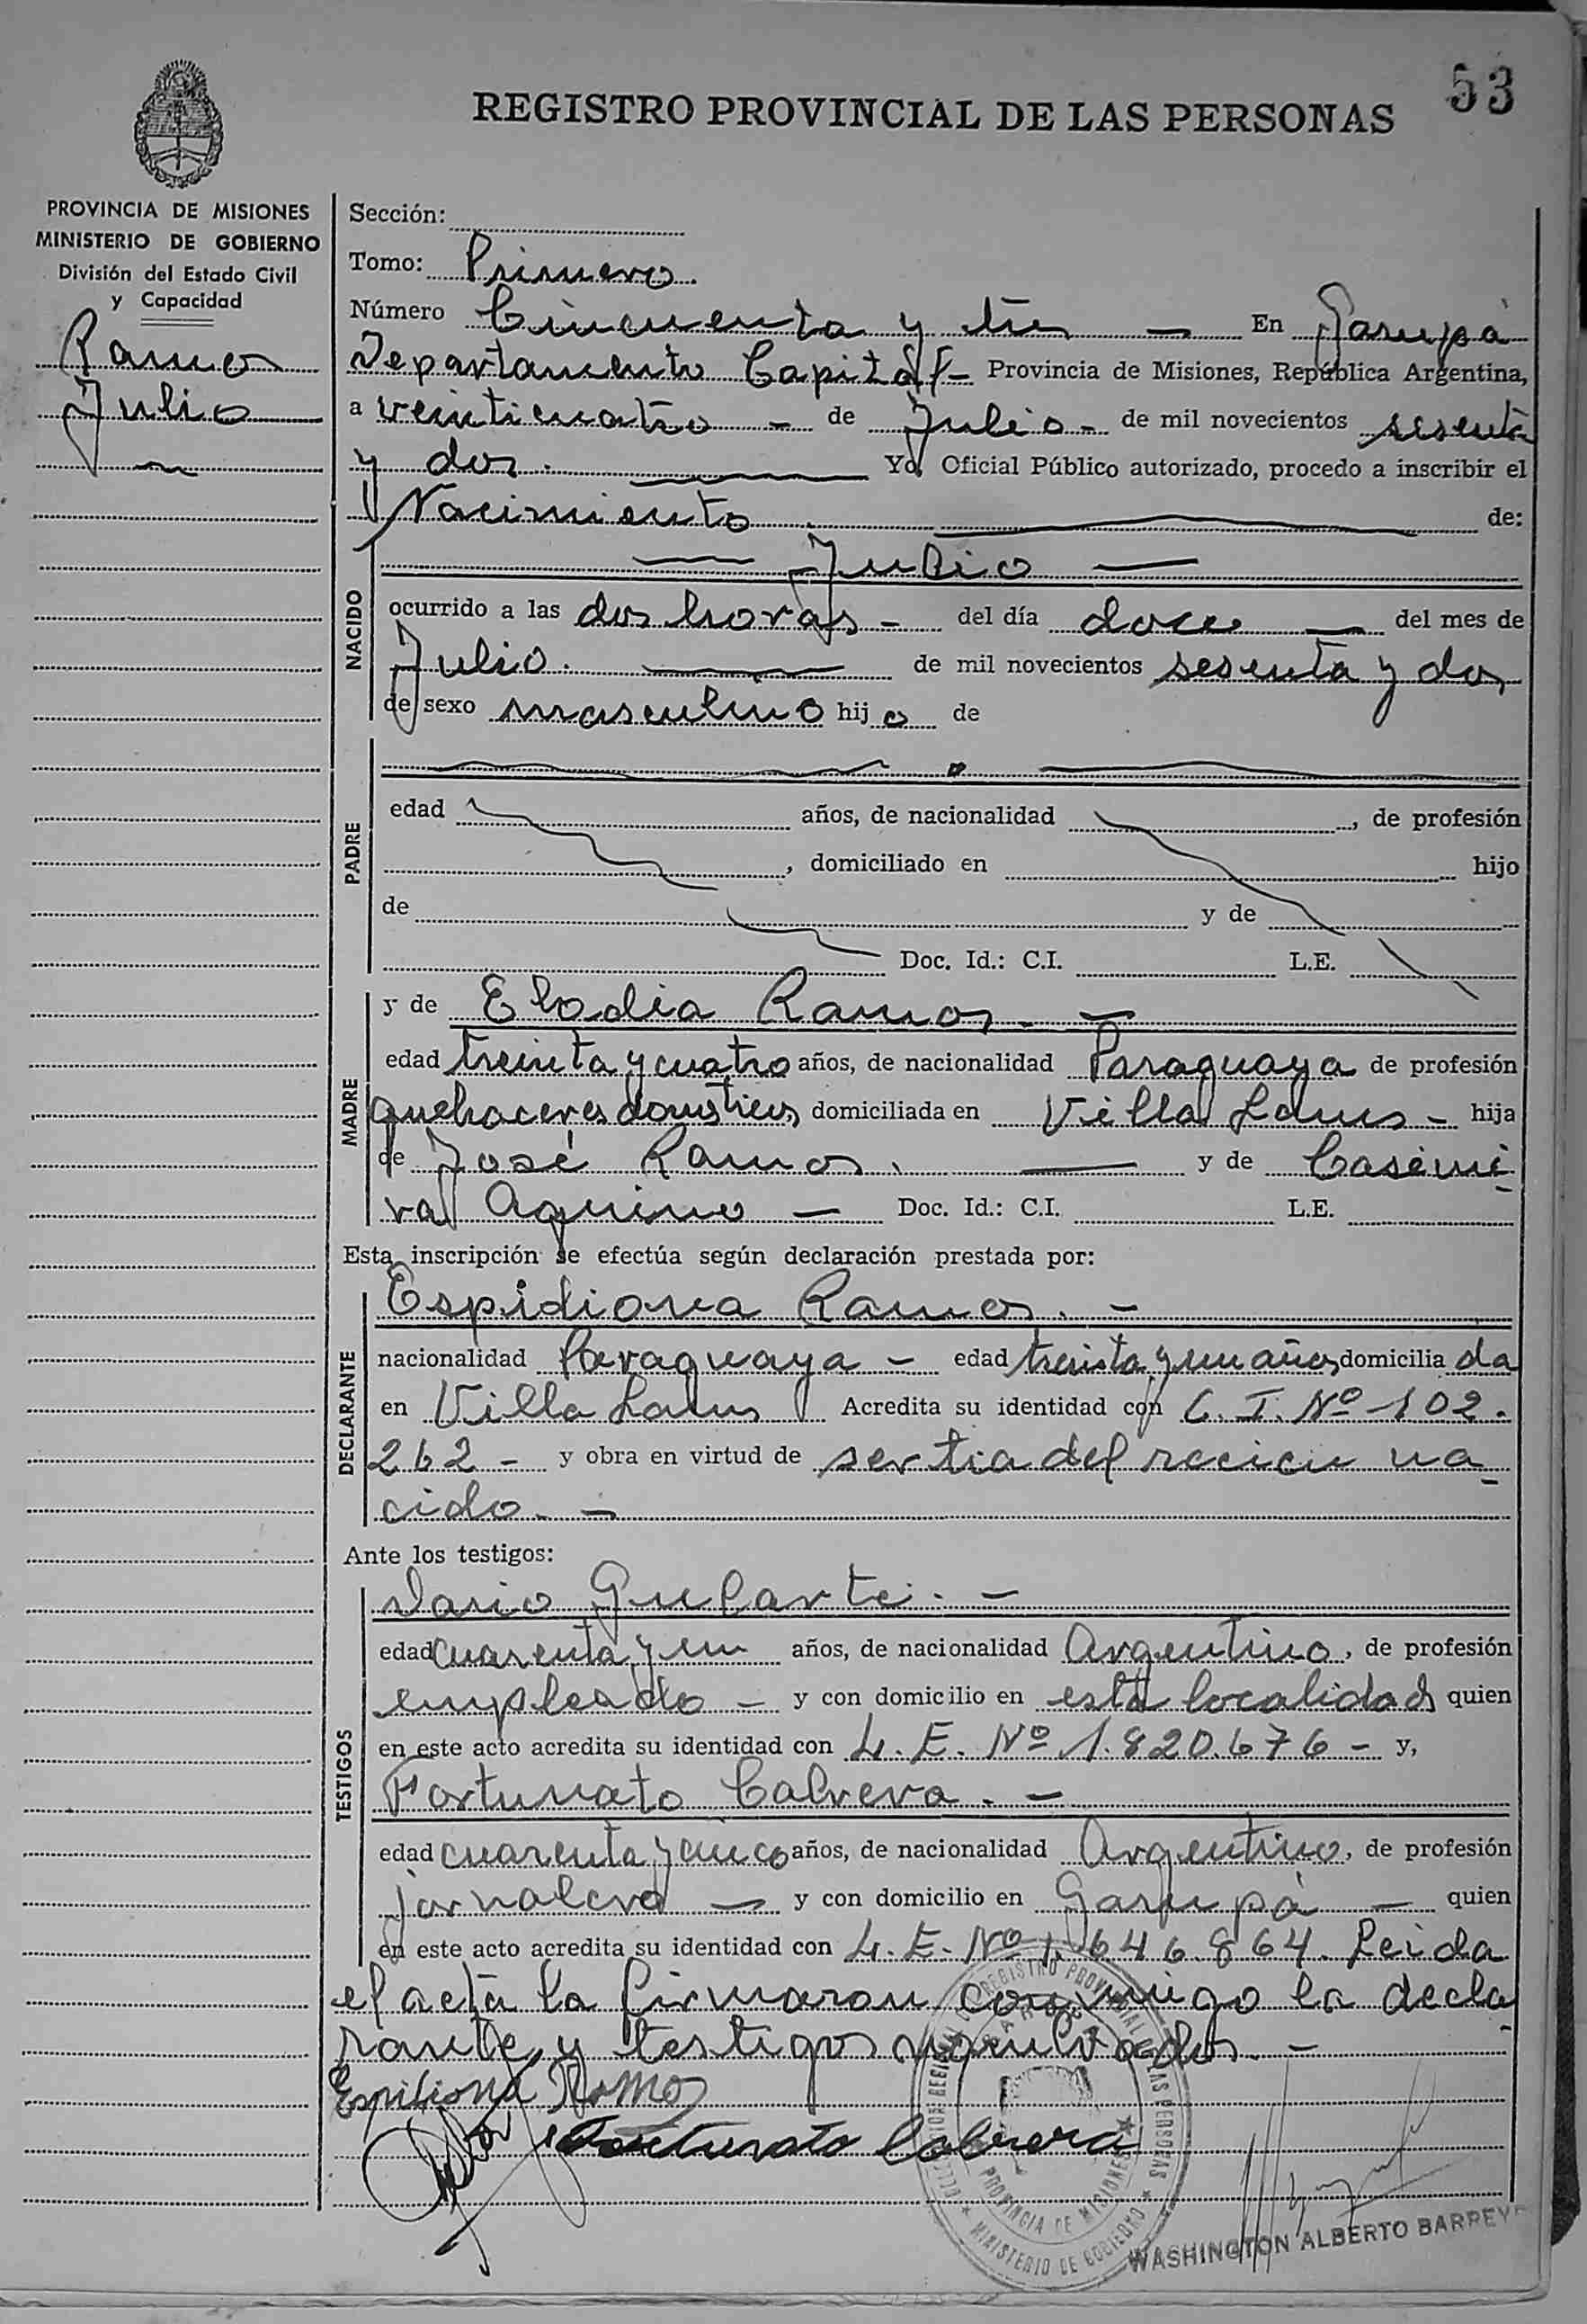 53
REGISTRO PROVINCIAL DE LAS PERSONAS
PROVINCIA DE MISIONES
MINISTERIO DE GOBIERNO
División del Estado Civil
y Capacidad
Ramos
Julio
Sección:
Tomo: Primero.
Número Cincuenta y tres — En Garupá
Departamento Capital - Provincia de Misiones, República Argentina,
a veinticuatro - de Julio - de mil novecientos sesenta
y dos. — Yo, Oficial Público autorizado, procedo a inscribir el
Nacimiento. — de:
NACIDO
— Julio —
ocurrido a las dos horas - del día doce — del mes de
Julio. — de mil novecientos sesenta y dos
de sexo masculino hijo de
PADRE
edad años, de nacionalidad , de profesión
, domiciliado en hijo
de y de
Doc. Id.: C.I. L.E.
MADRE
y de Elodia Ramos. —
edad treinta y cuatro años, de nacionalidad Paraguaya de profesión
quehaceres domésticos, domiciliada en Villa Lanus - hija
de José Ramos. — y de Casimi-
ra Aquino — Doc. Id.: C.I. L.E.
Esta inscripción se efectúa según declaración prestada por:
DECLARANTE
Espidiona Ramos. -
nacionalidad Paraguaya - edad treinta y un años, domiciliada
en Villa Lanus Acredita su identidad con C. I. Nº 102.
262 - y obra en virtud de ser tia del recien na-
cido. -
Ante los testigos:
TESTIGOS
Dario Gularte. -
edad cuarenta y un años, de nacionalidad Argentino, de profesión
empleado - y con domicilio en esta localidad quien
en este acto acredita su identidad con L. E. Nº 1.820.676 - y,
Fortunato Cabrera. -
edad cuarenta y cinco años, de nacionalidad Argentino, de profesión
jornalero — y con domicilio en Garupá — quien
en este acto acredita su identidad con L. E. Nº 1.646.864. Leida
el acta la firmaron conmigo la decla-
rante y testigos -
Ramos
Fortunato Cabrera
PROVINCIA DE MISIONES
MINISTERIO DE GOBIERNO
WASHINGTON ALBERTO BARREY